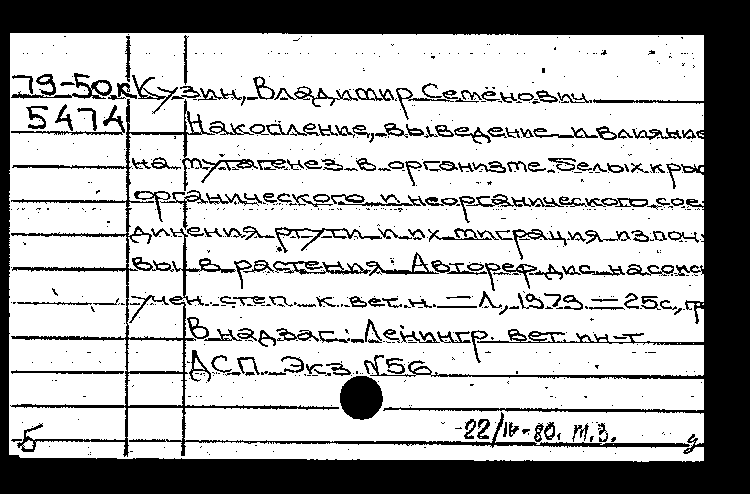 79-50к Кузин, Владимир Семёнович
5474 Накопление, выведение и влияние
на мутагенез в организме белых крыс
органического и неорганического сое-
динения ртути и их миграция из поч-
вы в растения: Автореф дис на соиск
учен. степ. к. вет. н. — Л., 1979. — 25с, гр
В надзаг.: Ленингр. вет. ин-т
ДСП Экз. №56
22/IV-80. т.з.
5 д